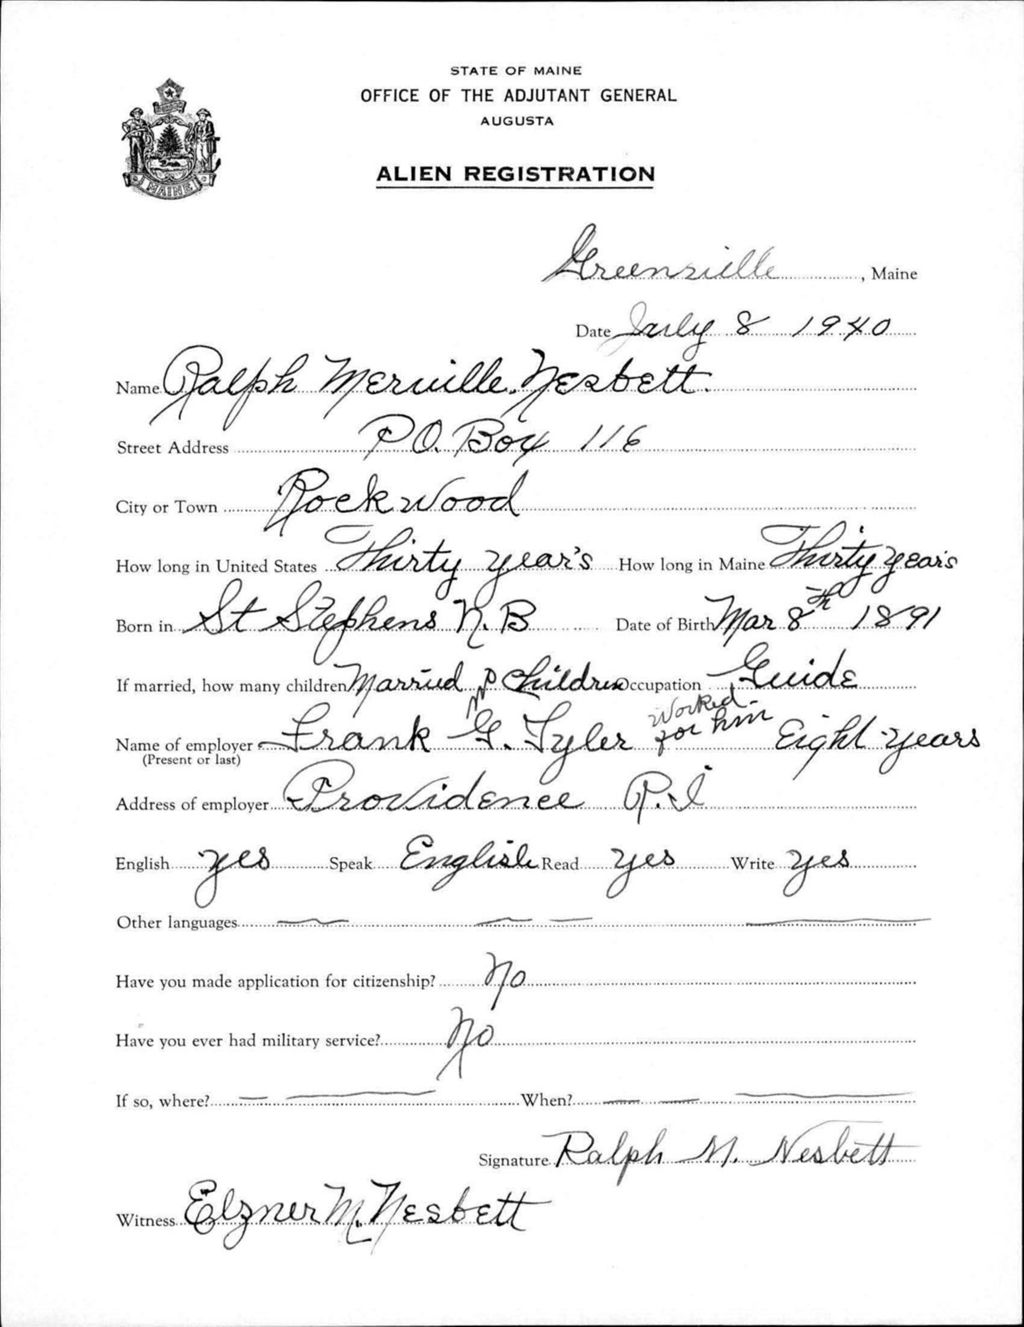 STATE OF MAINE
OFFICE OF THE ADJUTANT GENERAL
AUGUSTA
ALIEN REGISTRATION
MAINE
Greenville, Maine
Date July 8 1940
Name Ralph Merville Nesbett.
Street Address P.O. Box 116
City or Town Rockwood
How long in United States Thirty year's How long in Maine Thirty years
Born in St Stephens N.B Date of Birth Mar 8th 1891
If married, how many children Married no Children Occupation Guide
Name of employer Frank G. Tyler worked for him Eight years
(Present or last)
Address of employer Providence R.I
English yes Speak English Read yes Write yes
Other languages
Have you made application for citizenship? No
Have you ever had military service? No
If so, where? When?
Signature Ralph M. Nesbett
Witness Elzner M. Nesbett